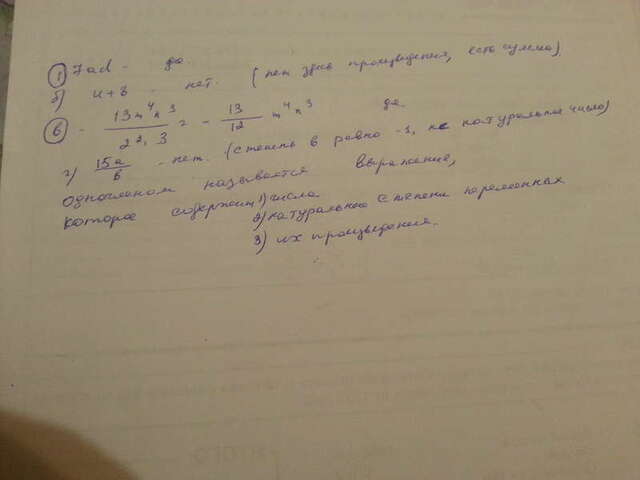 ① 7ad - да.
б) 4+8 - нет. (нет здесь произведения, есть сумма)
в) - 13m⁴n³/2²·3 = - 13/12 m⁴n³ да.
г) 15a/b - нет. (степень b равно -1, не натуральное число)
Одночленом называется выражение,
которое содержит 1) числа
2) натуральное степени переменных
3) их произведения.